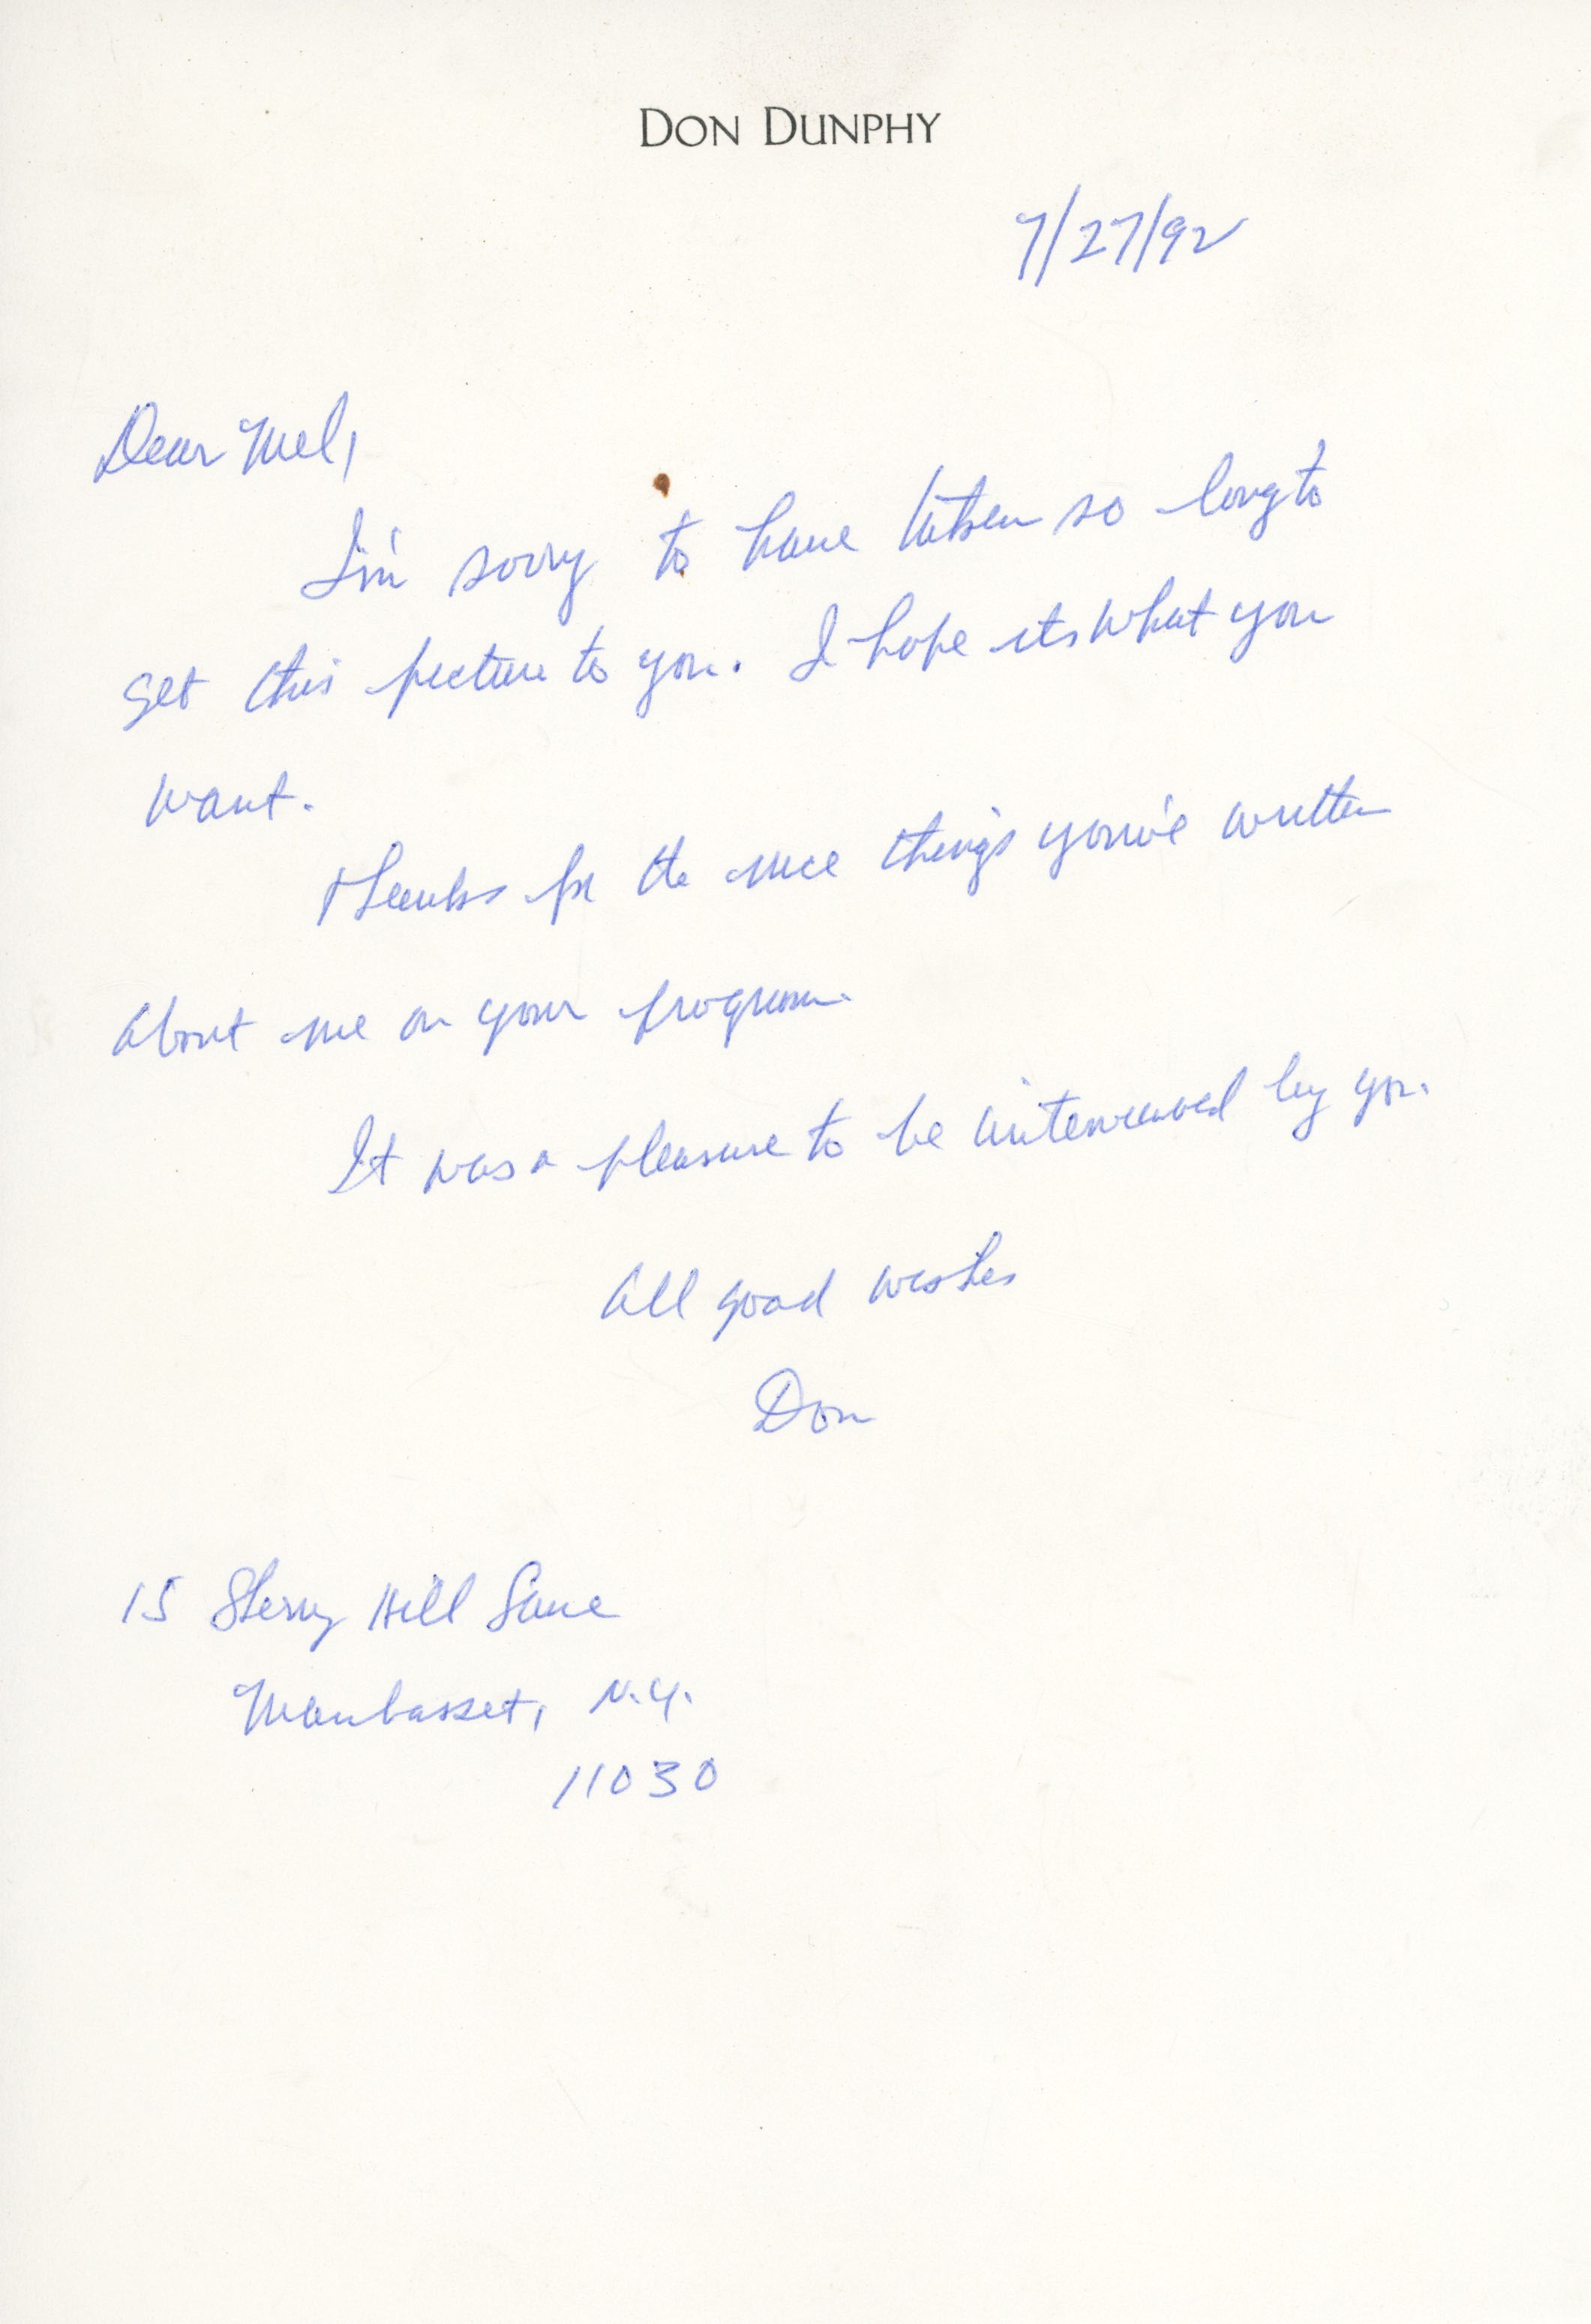 DON DUNPHY
7/27/92
Dear Mel,
I'm sorry to have taken so long to
get this picture to you. I hope its what you
want.
Thanks for the nice things you've written
about me on your program.
It was a pleasure to be interviewed by you.
All good wishes
Don
15 Sherry Hill Lane
Manhasset, N.Y.
11030